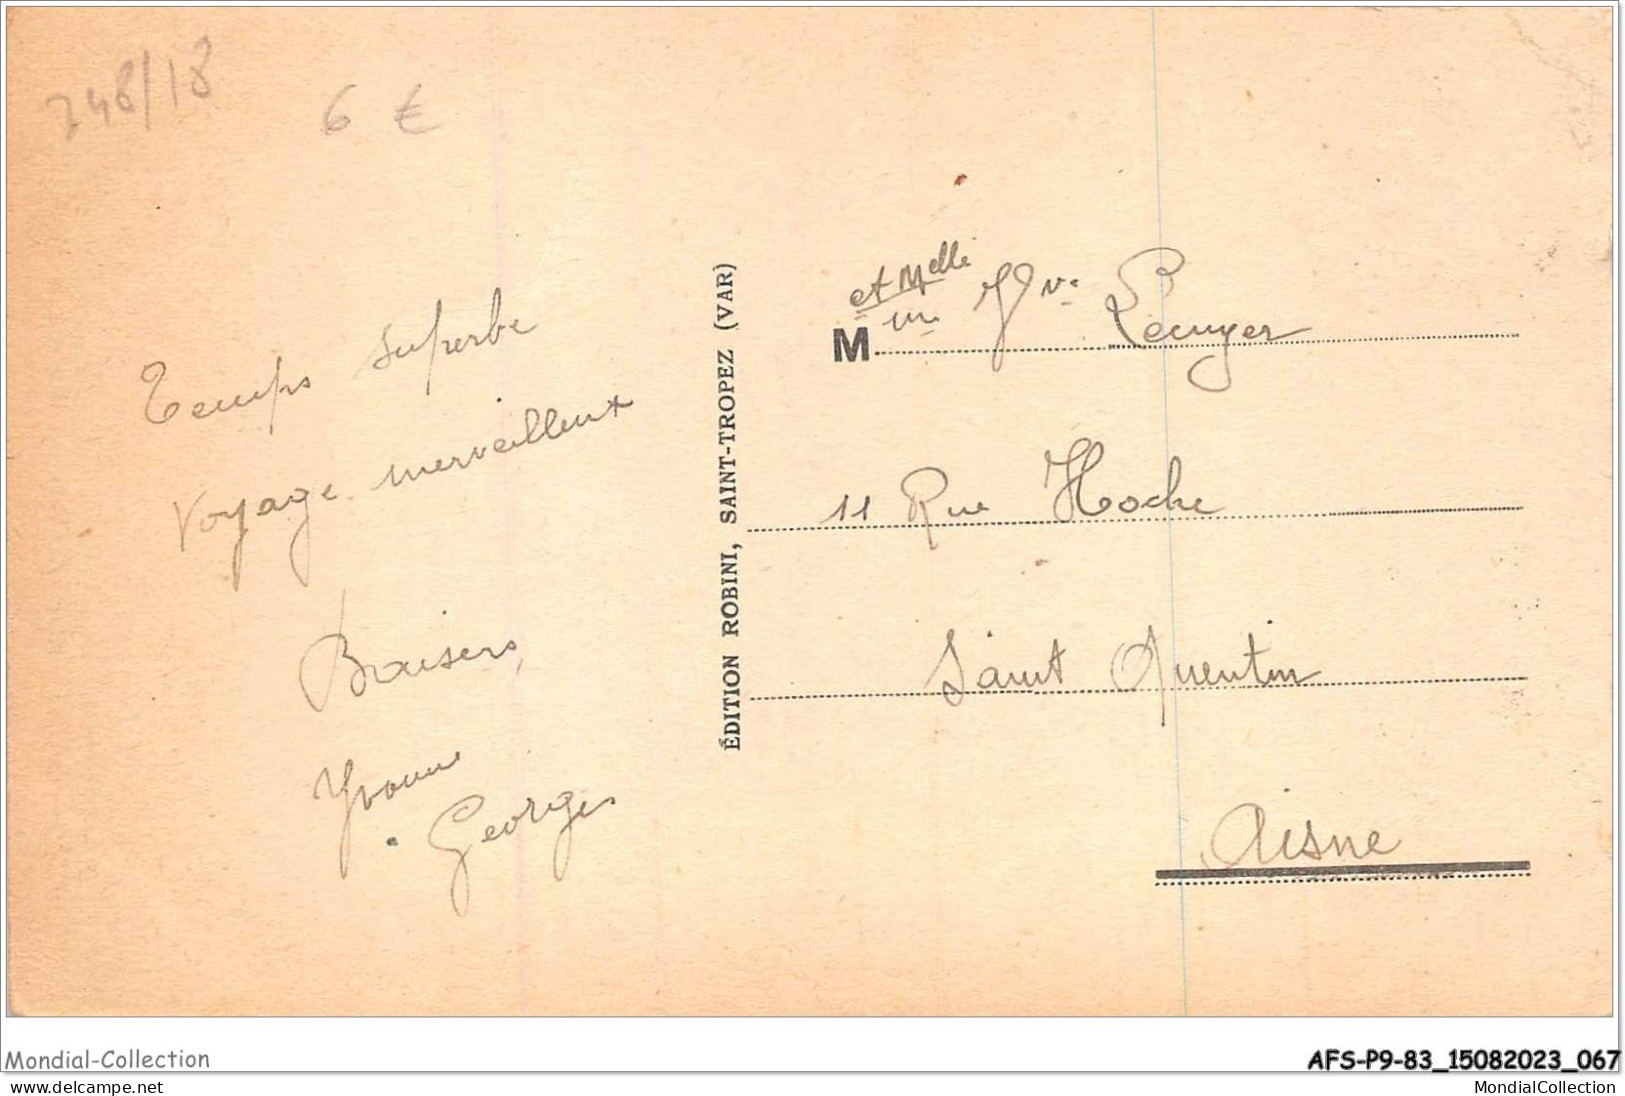 248/18
6 €
Temps superbe
Voyage merveilleux
Baisers
Yvonne
Georges
ÉDITION ROBINI, SAINT-TROPEZ (VAR)
et Melle
Mme Vve Lecuyer
11 Rue Hoche
Saint Quentin
Aisne
Mondial-Collection
AFS-P9-83_15082023_067
www.delcampe.net
MondialCollection